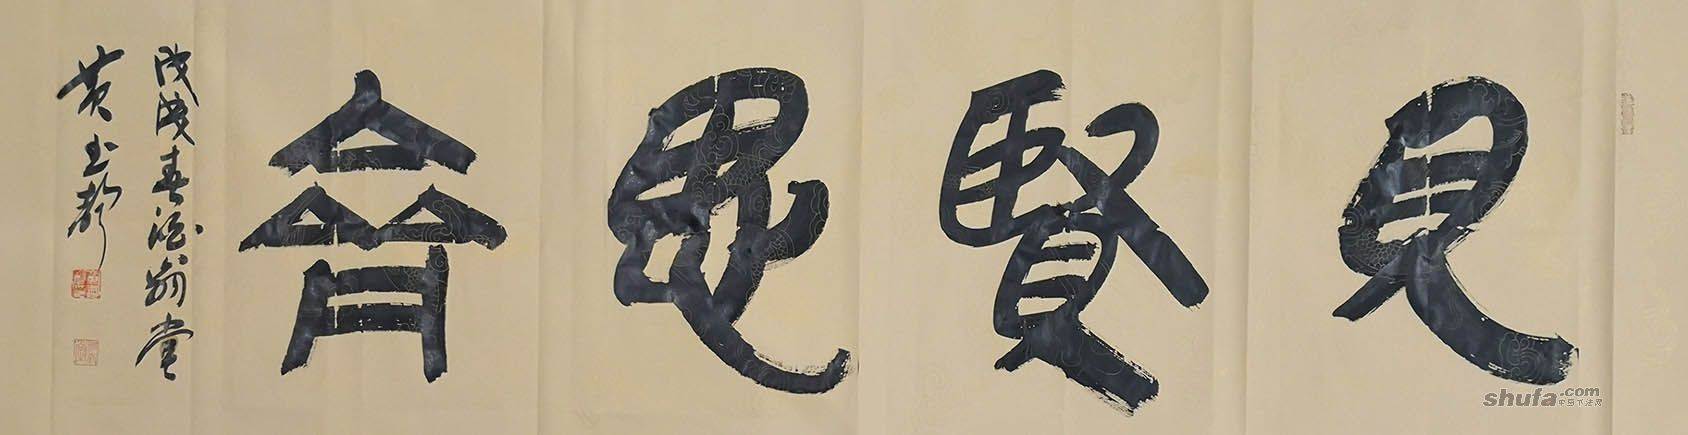 見賢思齊
戊戌春酒翰堂
黄玉
shufa.com